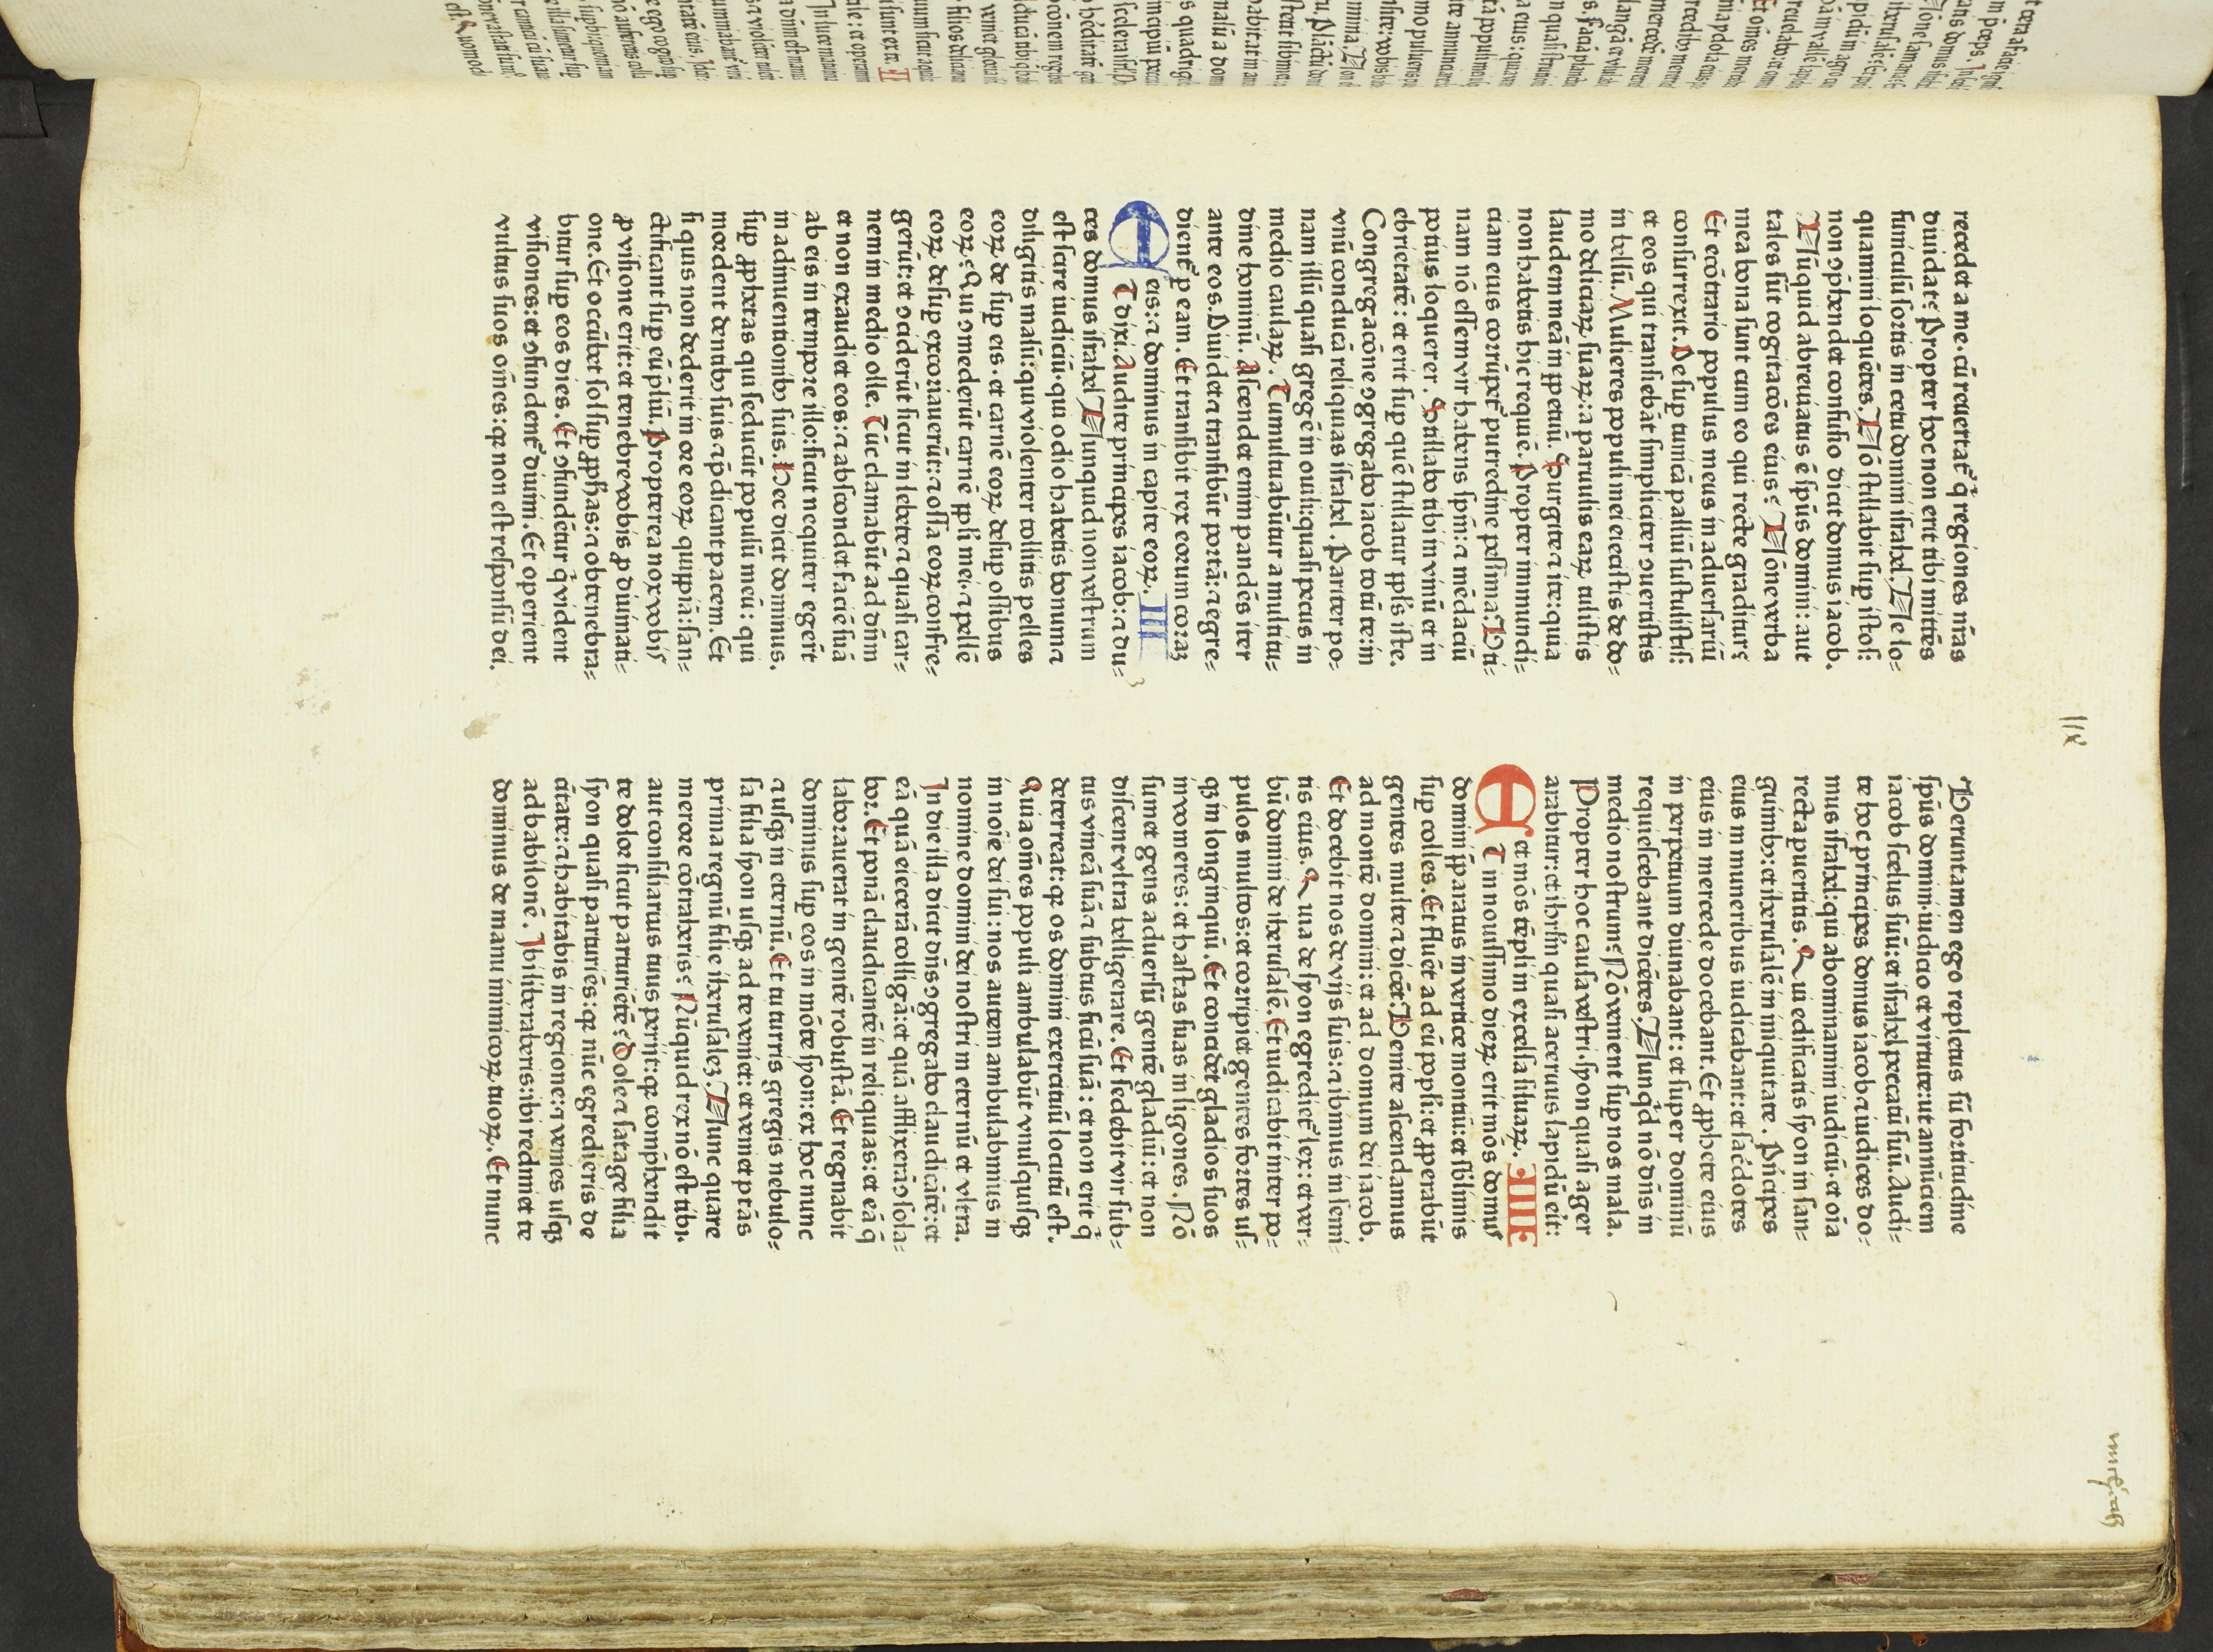 recedet a me·cū reuertat᷑ q̇ regiones nr̄as
diuidat? Propter hoc non erit tibi mittēs
funiculū sortis in cetu domini israhel. Ne lo⸗
quamini loquētes. Nō stillabit sup istos:
non ꝯp̄hendet confusio dicit domus iacob.
Nūquid abreuiatus ē sp̄us domini: aut
tales sūt cogitacōes eius? Nōne verba
mea bona sunt cum eo qui recte graditur?
Et ecōtrario populus meus in aduersariū
consurrexit. De sup tunicā palliū sustulistis:
et eos qui transiebāt simpliciter ꝯuertistis
in bellū. Mulieres populi mei eiecistis de do⸗
mo deliciaꝝ suaꝝ: a paruulis eaꝝ tulistis
laudem meā in ꝑpetuū. Surgite ⁊ ite: quia
non habetis hic requiē. Propter inmundi⸗
ciam eius corrūpet᷑ putredine pessima: Uti⸗
nam nō essem vir habens sp̄m: ⁊ mēdaciū
potius loquerer. Stillabo tibi in vinū et in
ebrietatē: et erit sup quē stillatur pp̄ls iste.
Congregacōne ꝯgregabo iacob totū te: in
vnū conducā reliquias israhel. Pariter po⸗
nam illū quasi gregē in ouili: quasi pecus in
medio caulaꝝ. Tumultuabūtur a multitu⸗
dine hominū. Ascendet enim pandēs iter
ante eos. Diuidet⁊ transibūt portā: ⁊ egre⸗
dient᷑ ꝑ eam. Et transibit rex eorum coraꝫ
eis: ⁊ dominus in capite eoꝝ. III
ET dixi. Audite principes iacob: ⁊ du⸗
ces domus israhel. Nunquid non vestrum
est scire iudiciū· qui odio habetis bonum ⁊
diligitis malū: qui violenter tollitis pelles
eoꝝ de sup eis· et carnē eoꝝ desup ossibus
eoꝝ? Qui ꝯmederūt carnē pp̄li mei· ⁊ pellē
eoꝝ desup excoriauerūt: ⁊ ossa eoꝝ confre⸗
gerūt: et ꝯciderūt sicut in lebete ⁊ quasi car⸗
nem in medio olle. Tūc clamabūt ad dn̄m
et non exaudiet eos: ⁊ abscondet faciē suā
ab eis in tempore illo: sicut nequiter egerūt
in adinuentionibꝫ suis. Hec dicit dominus.
sup ꝓphetas qui seducūt populū meū: qui
mordent dentibꝫ suis ⁊ p̄dicant pacem. Et
si quis non dederit in ore eoꝝ quippiā: san⸗
ctificant sup eū p̄liū. Propterea nox vobis
ꝓ visione erit: et tenebre vobis ꝓ diuinati⸗
one. Et occūbet sol sup ꝓphas: ⁊ obtenebra⸗
bitur sup eos dies. Et ꝯfundētur q̇ vident
visiones: et ꝯfundent᷑ diuini. Et operient
vultus suos om̄es: qꝛ non est responsū dei.
Veruntamen ego repletus sū fortitudine
sp̄us domini· iudicio et virtute: ut annūciem
iacob scelus suū: et israhel peccatū suū. Audi⸗
te hoc principes domus iacob ⁊ iudices do⸗
mus israhel: qui abominamini iudiciū· et oīa
recta puertitis. Qui edificatis syon in san⸗
guinibꝫ: et iherusalē in iniquitate. Pn̄cipes
eius in muneribus iudicabant: et sac̄dotes
eius in mercede docebant. Et ꝓphete eius
in perpetuum diuinabant: et super dominū
requiescebant dicētes. Nunqd nō dn̄s in
medio nostrum? Nō venient sup nos mala.
Propter hoc causa vestri· syon quasi ager
arabitur: et ihrl̄m quasi aceruus lapidū erit:
et mōs tēpli in excelsa siluaꝝ. IIII
ET in nouissimo dieꝝ erit mōs domus
domini p̄paratus in vertice montiū: et sblimis
sup colles. Et fluēt ad eū popli: et ꝓperabūt
gentes multe ⁊ dicēt. Venite ascendamus
ad montē domini: et ad domum dei iacob.
Et docebit nos de viis suis: ⁊ ibimus in semi⸗
tis eius. Quia de syon egrediet᷑ lex: et ver⸗
bū domini de iherusalē. Et iudicabit inter po⸗
pulos multos: et corripiet gentes fortes us⸗
qꝫ in longinquū. Et concidet gladios suos
in vomeres: et hastas suas in ligones. Nō
sumet gens aduersū gentē gladiū: et non
discent vltra belligerare. Et sedebit vir sub⸗
tus vineā suā ⁊ subtus ficū suā: et non erit q̇
deterreat: qꝛ os domini exercituū locutū est.
Quia om̄es populi ambulabūt vnusquisqꝫ
in noīe dei sui: nos autem ambulabimus in
nomine domini dei nostri in eternū et vltra.
In die illa dicit dn̄s ꝯgregabo claudicātē: et
eā quā eieceraꝫ colligā: et quā afflixerā ꝯsola⸗
bor. Et ponā claudicantē in reliquias: et eā q̄
laborauerat in gentē robustā. Et regnabit
dominus sup eos in mōte syon: ex hoc nunc
⁊ usqꝫ in eternū. Et tu turris gregis nebulo⸗
sa filia syon usqꝫ ad te veniet: et veniet ptās
prima regnū filie iherusaleꝫ. Nunc quare
merore cōtraheris? Nūquid rex nō est tibi·
aut consiliarius tuus periit: qꝛ comp̄hendit
te dolor sicut parturiētē? Dole ⁊ satage filia
syon quasi parturiēs: qꝛ nūc egredieris de
ciuitate: ⁊ habitabis in regione: ⁊ venies usqꝫ
ad babilonē. Ibi liberaberis: ibi redimet te
dominus de manu inimicoꝝ tuoꝝ. Et nunc